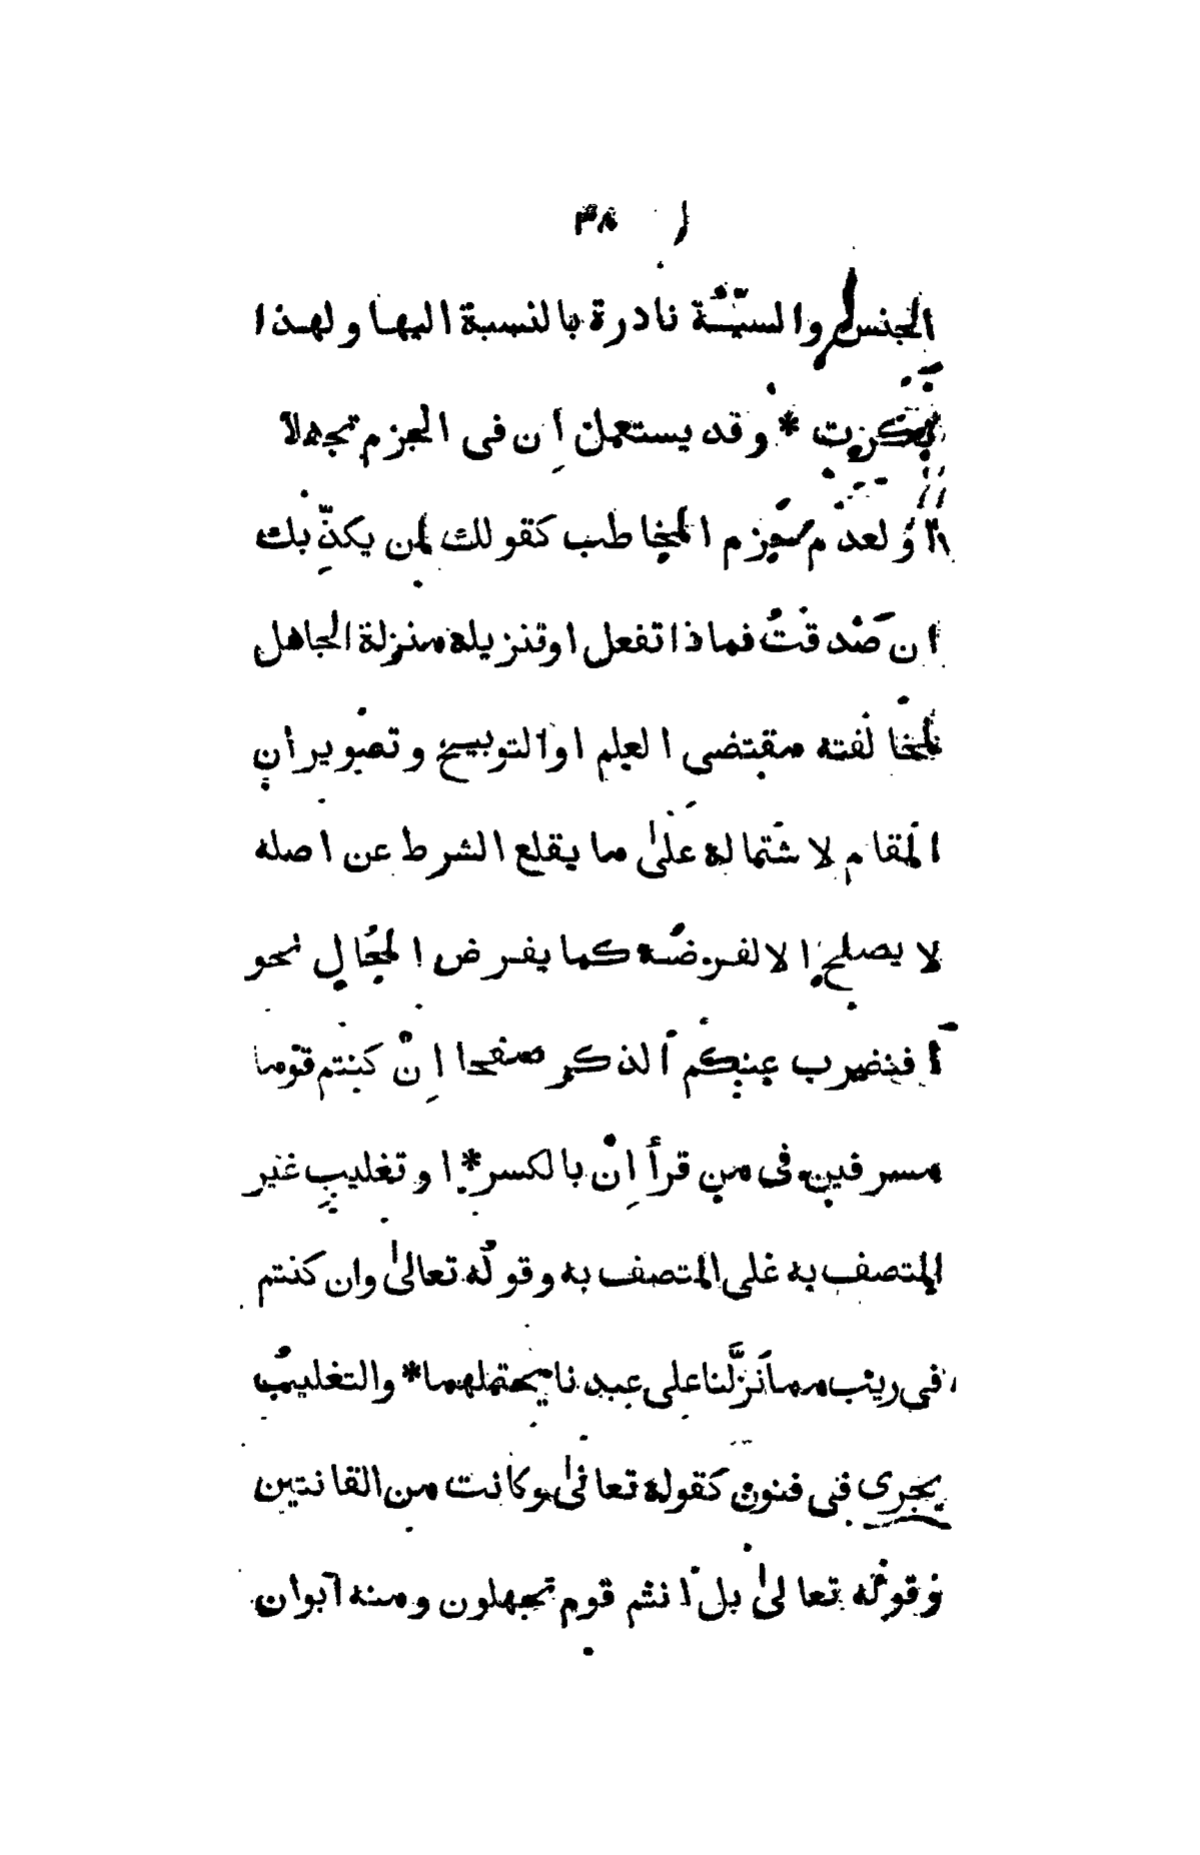 ٣٨
الجنس والسيّئة نادرة بالنسبة اليها ولهذا
نكرت * وقد يستعمل اِن فى الجزم تجهلا
او لعدم جزم المخاطب كقولك لمن يكذّبك
ان صدقتُ فماذا تفعل او تنزيله منزلة الجاهل
لمخالفته مقتضى العلم او التوبيخ وتصوير ان
المقام لاشتماله علىٰ ما يقلع الشرط عن اصله
لا يصلح الا لفرضه كما يفرض المحال نحو
افنضرب عنكم الذكر صفحا اِنْ كنتم قوما
مسرفين فى من قرأ اِنْ بالكسر * او تغليب غير
المتصف به على المتصف به وقولُه تعالىٰ وان كنتم
فى ريب مما نزَّلنا على عبدنا يحتملهما * والتغليبُ
يجرى فى فنون كقوله تعالىٰ وكانت من القانتين
وقوله تعالىٰ بل انتم قوم تجهلون ومنه ابوان